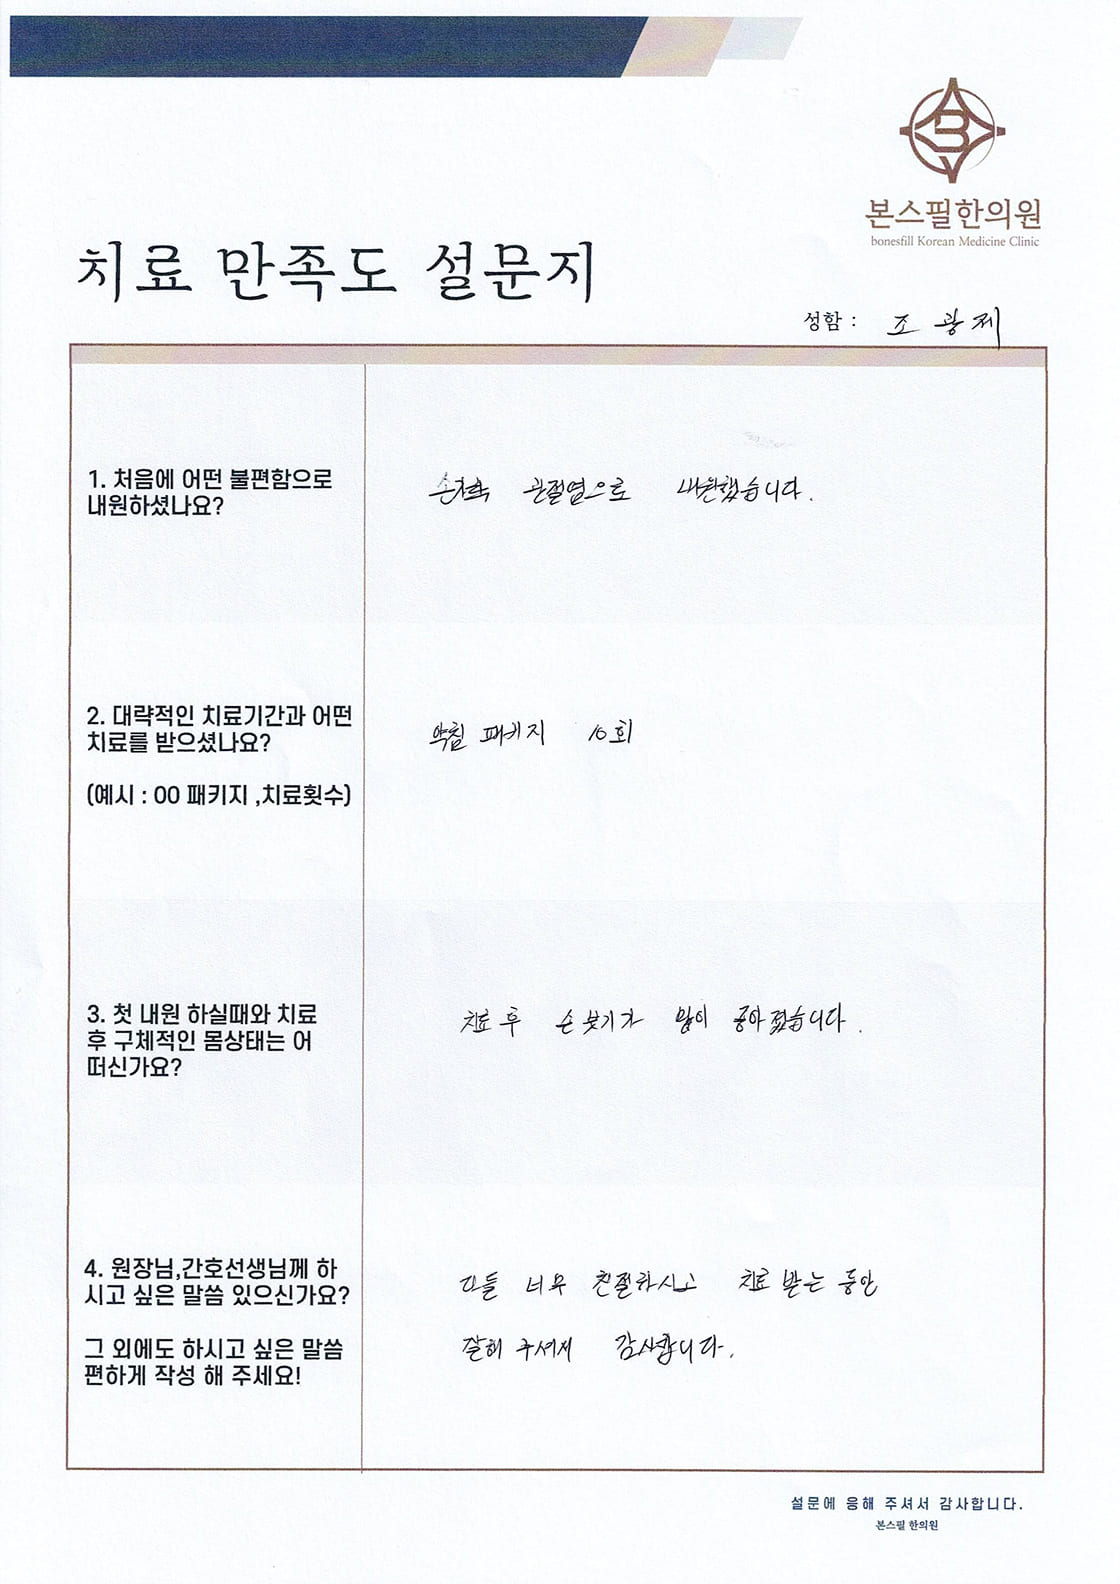 본스필한의원
bonesfill Korean Medicine Clinic
치료 만족도 설문지
성함 : 조 광 제
1. 처음에 어떤 불편함으로
내원하셨나요?
관절염으로 내원했습니다.
2. 대략적인 치료기간과 어떤
치료를 받으셨나요?
(예시 : 00 패키지 ,치료횟수)
약침 패키지 10회
3. 첫 내원 하실때와 치료
후 구체적인 몸상태는 어
떠신가요?
치료 후 손 붓기가 많이 좋아졌습니다.
4. 원장님,간호선생님께 하
시고 싶은 말씀 있으신가요?
그 외에도 하시고 싶은 말씀
편하게 작성 해 주세요!
다들 너무 친절하시고 치료 받는 동안
잘해 주셔서 감사합니다.
설문에 응해 주셔서 감사합니다.
본스필 한의원